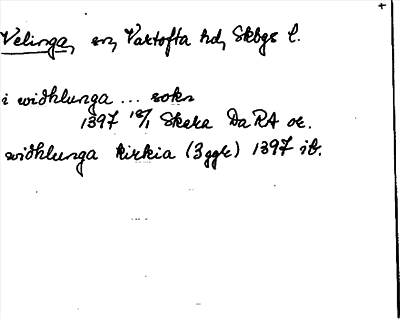 +
Velinga, sn, Vartofta hd, Skbgs l.
i widhlunga ... sokn
1397 18/1 Skara DaRA or.
widhlunga kirkia (3 ggr) 1397 ib.